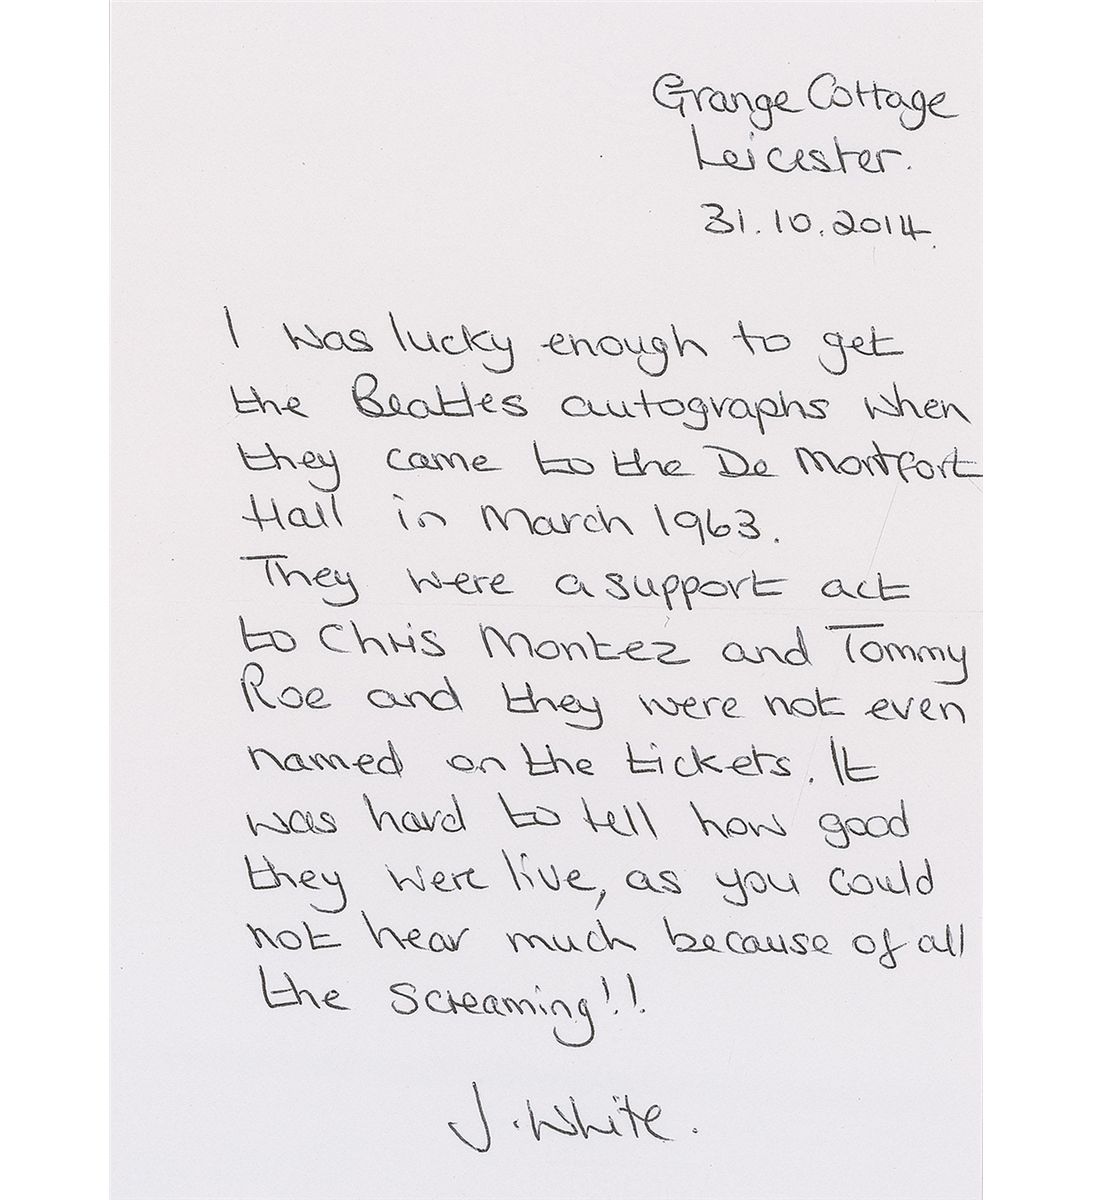 Grange Cottage
Leicester.
31.10.2014.
I was lucky enough to get
the Beatles autographs when
they came to the De Montfort
Hall in March 1963.
They were a support act
to Chris Montez and Tommy
Roe and they were not even
named on the tickets. It
was hard to tell how good
they were live, as you could
not hear much because of all
the screaming!!
J. White.